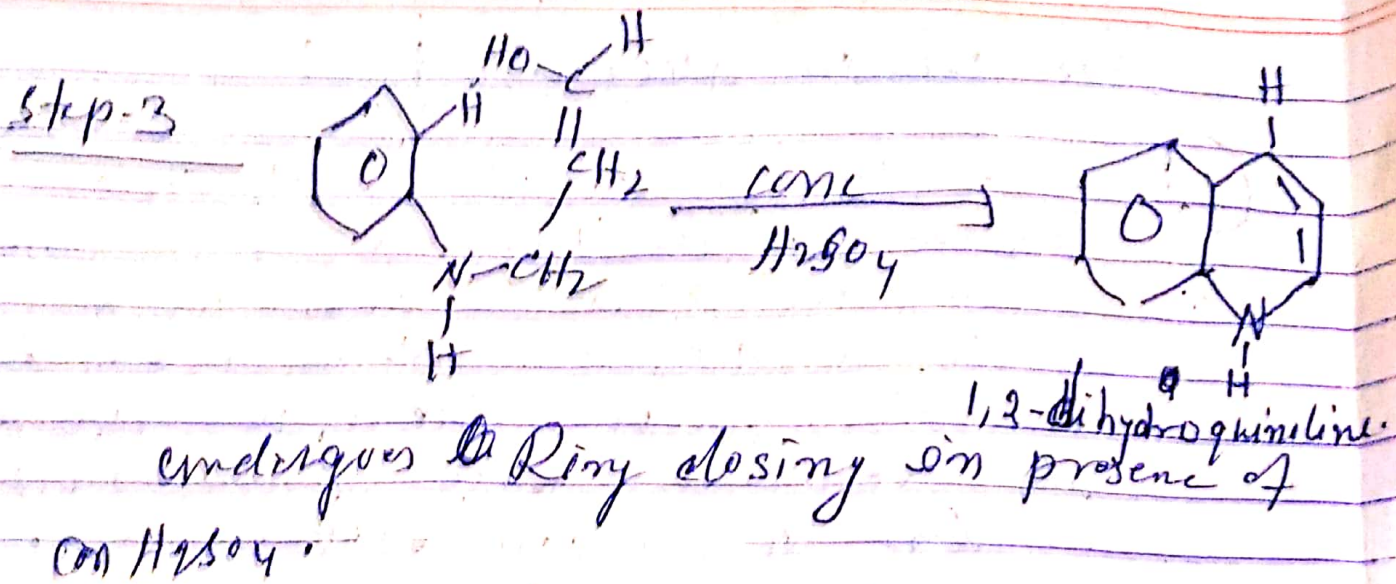 Step-3
HO
C
H
H
CH2
N-CH2
H
conc
H2SO4
H
N
H
1,2-dihydroquiniline.
undergoes Ring closing in presenc of
con H2SO4.